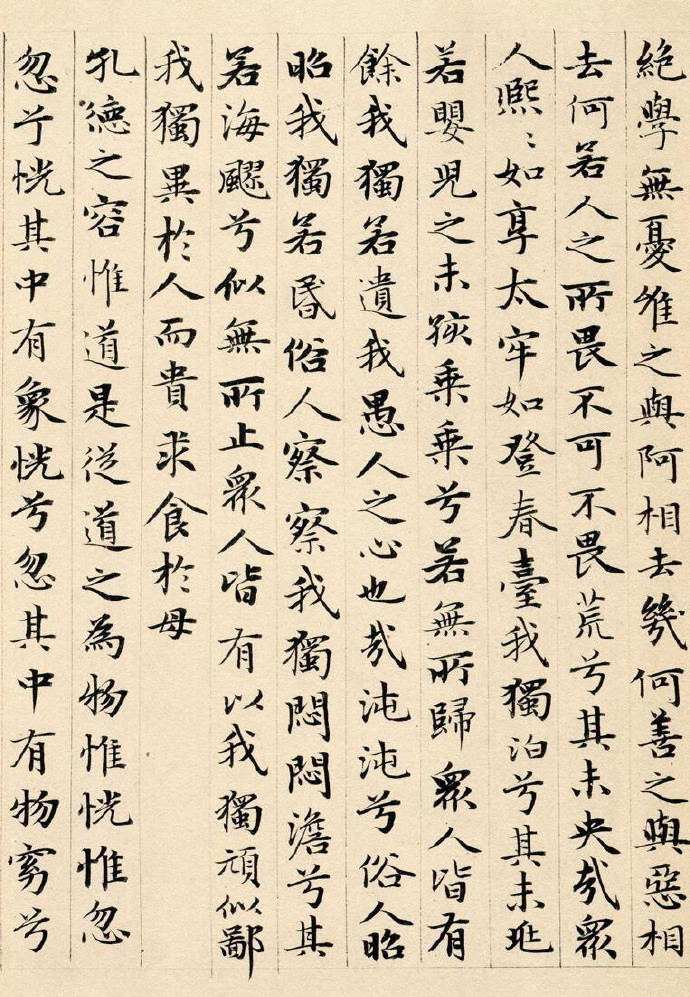 絶學無憂唯之與阿相去幾何善之與惡相
去何若人之所畏不可不畏荒兮其未央哉衆
人熈〻如享太牢如登春臺我獨泊兮其未兆
若嬰兒之未孩乗乗兮若無所歸衆人皆有
餘我獨若遺我愚人之心也哉沌沌兮俗人昭
昭我獨若昏俗人察察我獨悶悶澹兮其
若海飂兮似無所止衆人皆有以我獨頑似鄙
我獨異於人而貴求食於母
孔德之容惟道是従道之為物惟恍惟忽
忽兮恍其中有象恍兮忽其中有物窈兮